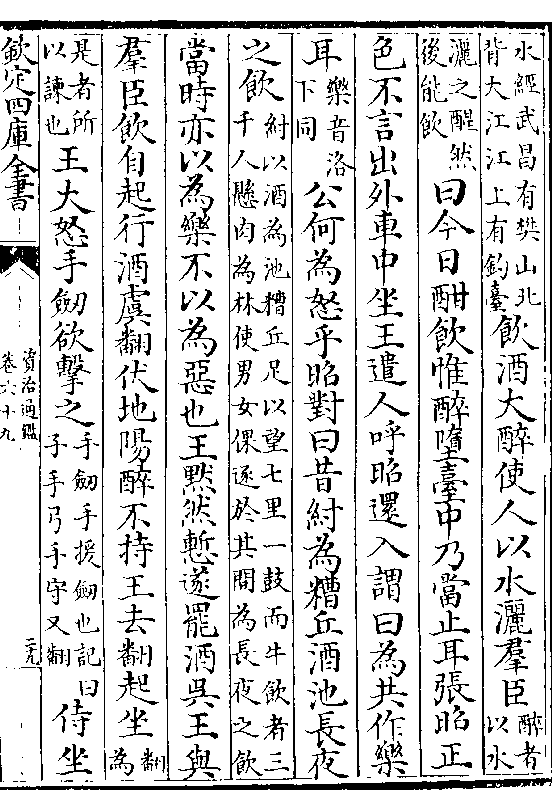 水經武昌有樊山北
背大江江上有釣臺
飲酒大醉使人以水灑羣臣
醉者
以水
灑之醒然
後能飲
曰今日酣飲惟醉墮臺中乃當止耳張昭正
色不言出外車中坐王遣人呼昭還入謂曰為共作樂
耳
樂音洛
下同
公何為怒乎昭對曰昔紂為糟丘酒池長夜
之飲
紂以酒為池糟丘足以望七里一鼓而牛飲者三
千人懸肉為林使男女倮逐於其間為長夜之飲
當時亦以為樂不以為惡也王黙然慙遂罷酒吳王與
羣臣飲自起行酒虞翻伏地陽醉不持王去翻起坐
翻
為
是者所
以諫也
王大怒手劒欲擊之
手劒手援劒也記
子手弓手守又翻
曰侍坐
欽定四庫全書
資治通鑑
卷六十九